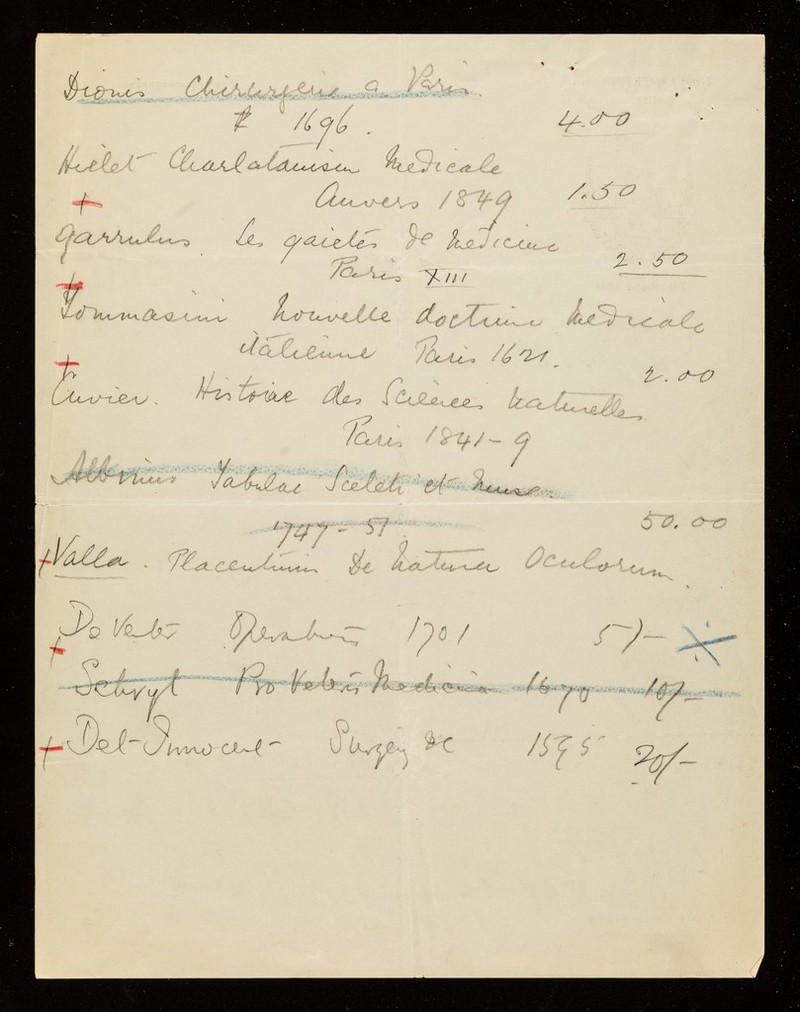 Dionis Chirurgerie a Paris
1696. 4.00
Hiclet Charlatanism Medicale
Anvers 1849 1.50
Garrulus. Les gaietés de Medicine
Paris XIII 2.50
Tommasini Nouvelle doctrine Medicale
italienne Paris 1621. 2.00
Cuvier. Histoire des Sciences Naturelles
Paris 1841-9
Albinus Tabulae Sceleti et Musc.
1747-51 50.00
Valla. Placentinin De Natura Oculorum.
Operations 1701 5/-
Schryl Pro Veteris Medicina 1670 10/-
Del Innocent Surgery &c 1595 20/-